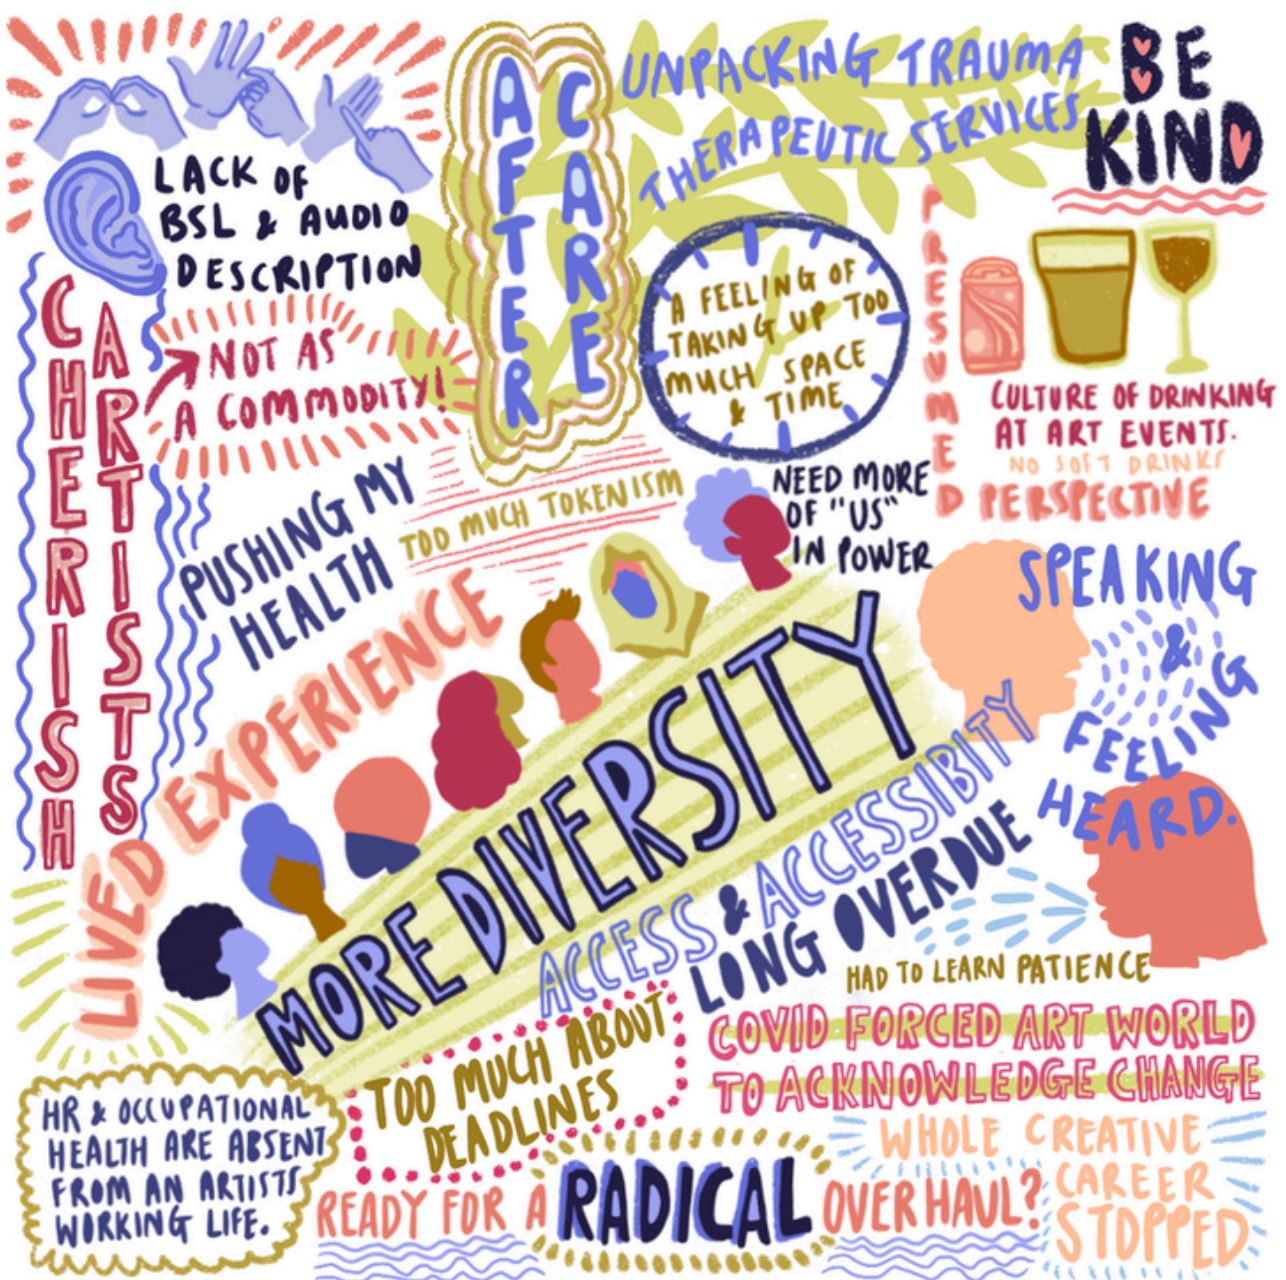 LACK OF
BSL & AUDIO
DESCRIPTION
AFTER
CARE
UNPACKING TRAUMA
THERAPEUTIC SERVICES
BE
KIND
CHERISH
ARTISTS
NOT AS
A COMMODITY!
A FEELING OF
TAKING UP TOO
MUCH SPACE
& TIME
PRESUMED
PERSPECTIVE
CULTURE OF DRINKING
AT ART EVENTS.
NO SOFT DRINKS
PUSHING MY
HEALTH
TOO MUCH TOKENISM
NEED MORE
OF "US"
IN POWER
LIVED EXPERIENCE
SPEAKING
&
FEELING
HEARD.
MORE DIVERSITY
ACCESS & ACCESSIBITY
LONG OVERDUE
HAD TO LEARN PATIENCE
COVID FORCED ART WORLD
TO ACKNOWLEDGE CHANGE
TOO MUCH ABOUT
DEADLINES
HR & OCCUPATIONAL
HEALTH ARE ABSENT
FROM AN ARTISTS
WORKING LIFE.
READY FOR A RADICAL OVERHAUL?
WHOLE CREATIVE
CAREER
STOPPED